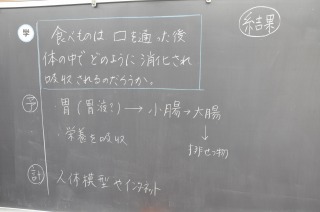 学
食べものは 口を通った後
体の中でどのように消化され
吸収されるのだろうか。
結果
予
・胃(胃液?)→小腸→大腸
↓
排せつ物
・栄養を吸収
計
人体模型やインタネット